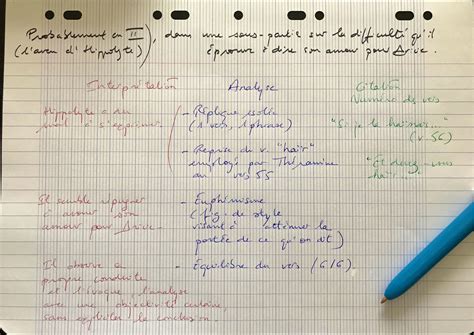 Probablement en II, dans une sous-partie sur la difficulté qu'il
(l'aveu d'Hippolyte) éprouve à dire son amour pour Aricie.
Interprétation Analyse Citation
Numéro de vers
Hippolyte a du - Réplique isolée "Si je la haïssais..."
mal à s'exprimer. (1 vers, 1 phrase) (v. 56)
- Reprise du v. "haïr" "Et devez-vous
employé par Théramène haïr..."
au vers 55
Il semble répugner - Euphémisme
à avouer son (fig. de style
amour pour Aricie. visant à atténuer la
portée de ce qu'on dit)
Il observe sa - Équilibre du vers (6/6)
propre conduite
et l'évoque, l'analyse
avec une objectivité certaine,
sans expliciter la conclusion.